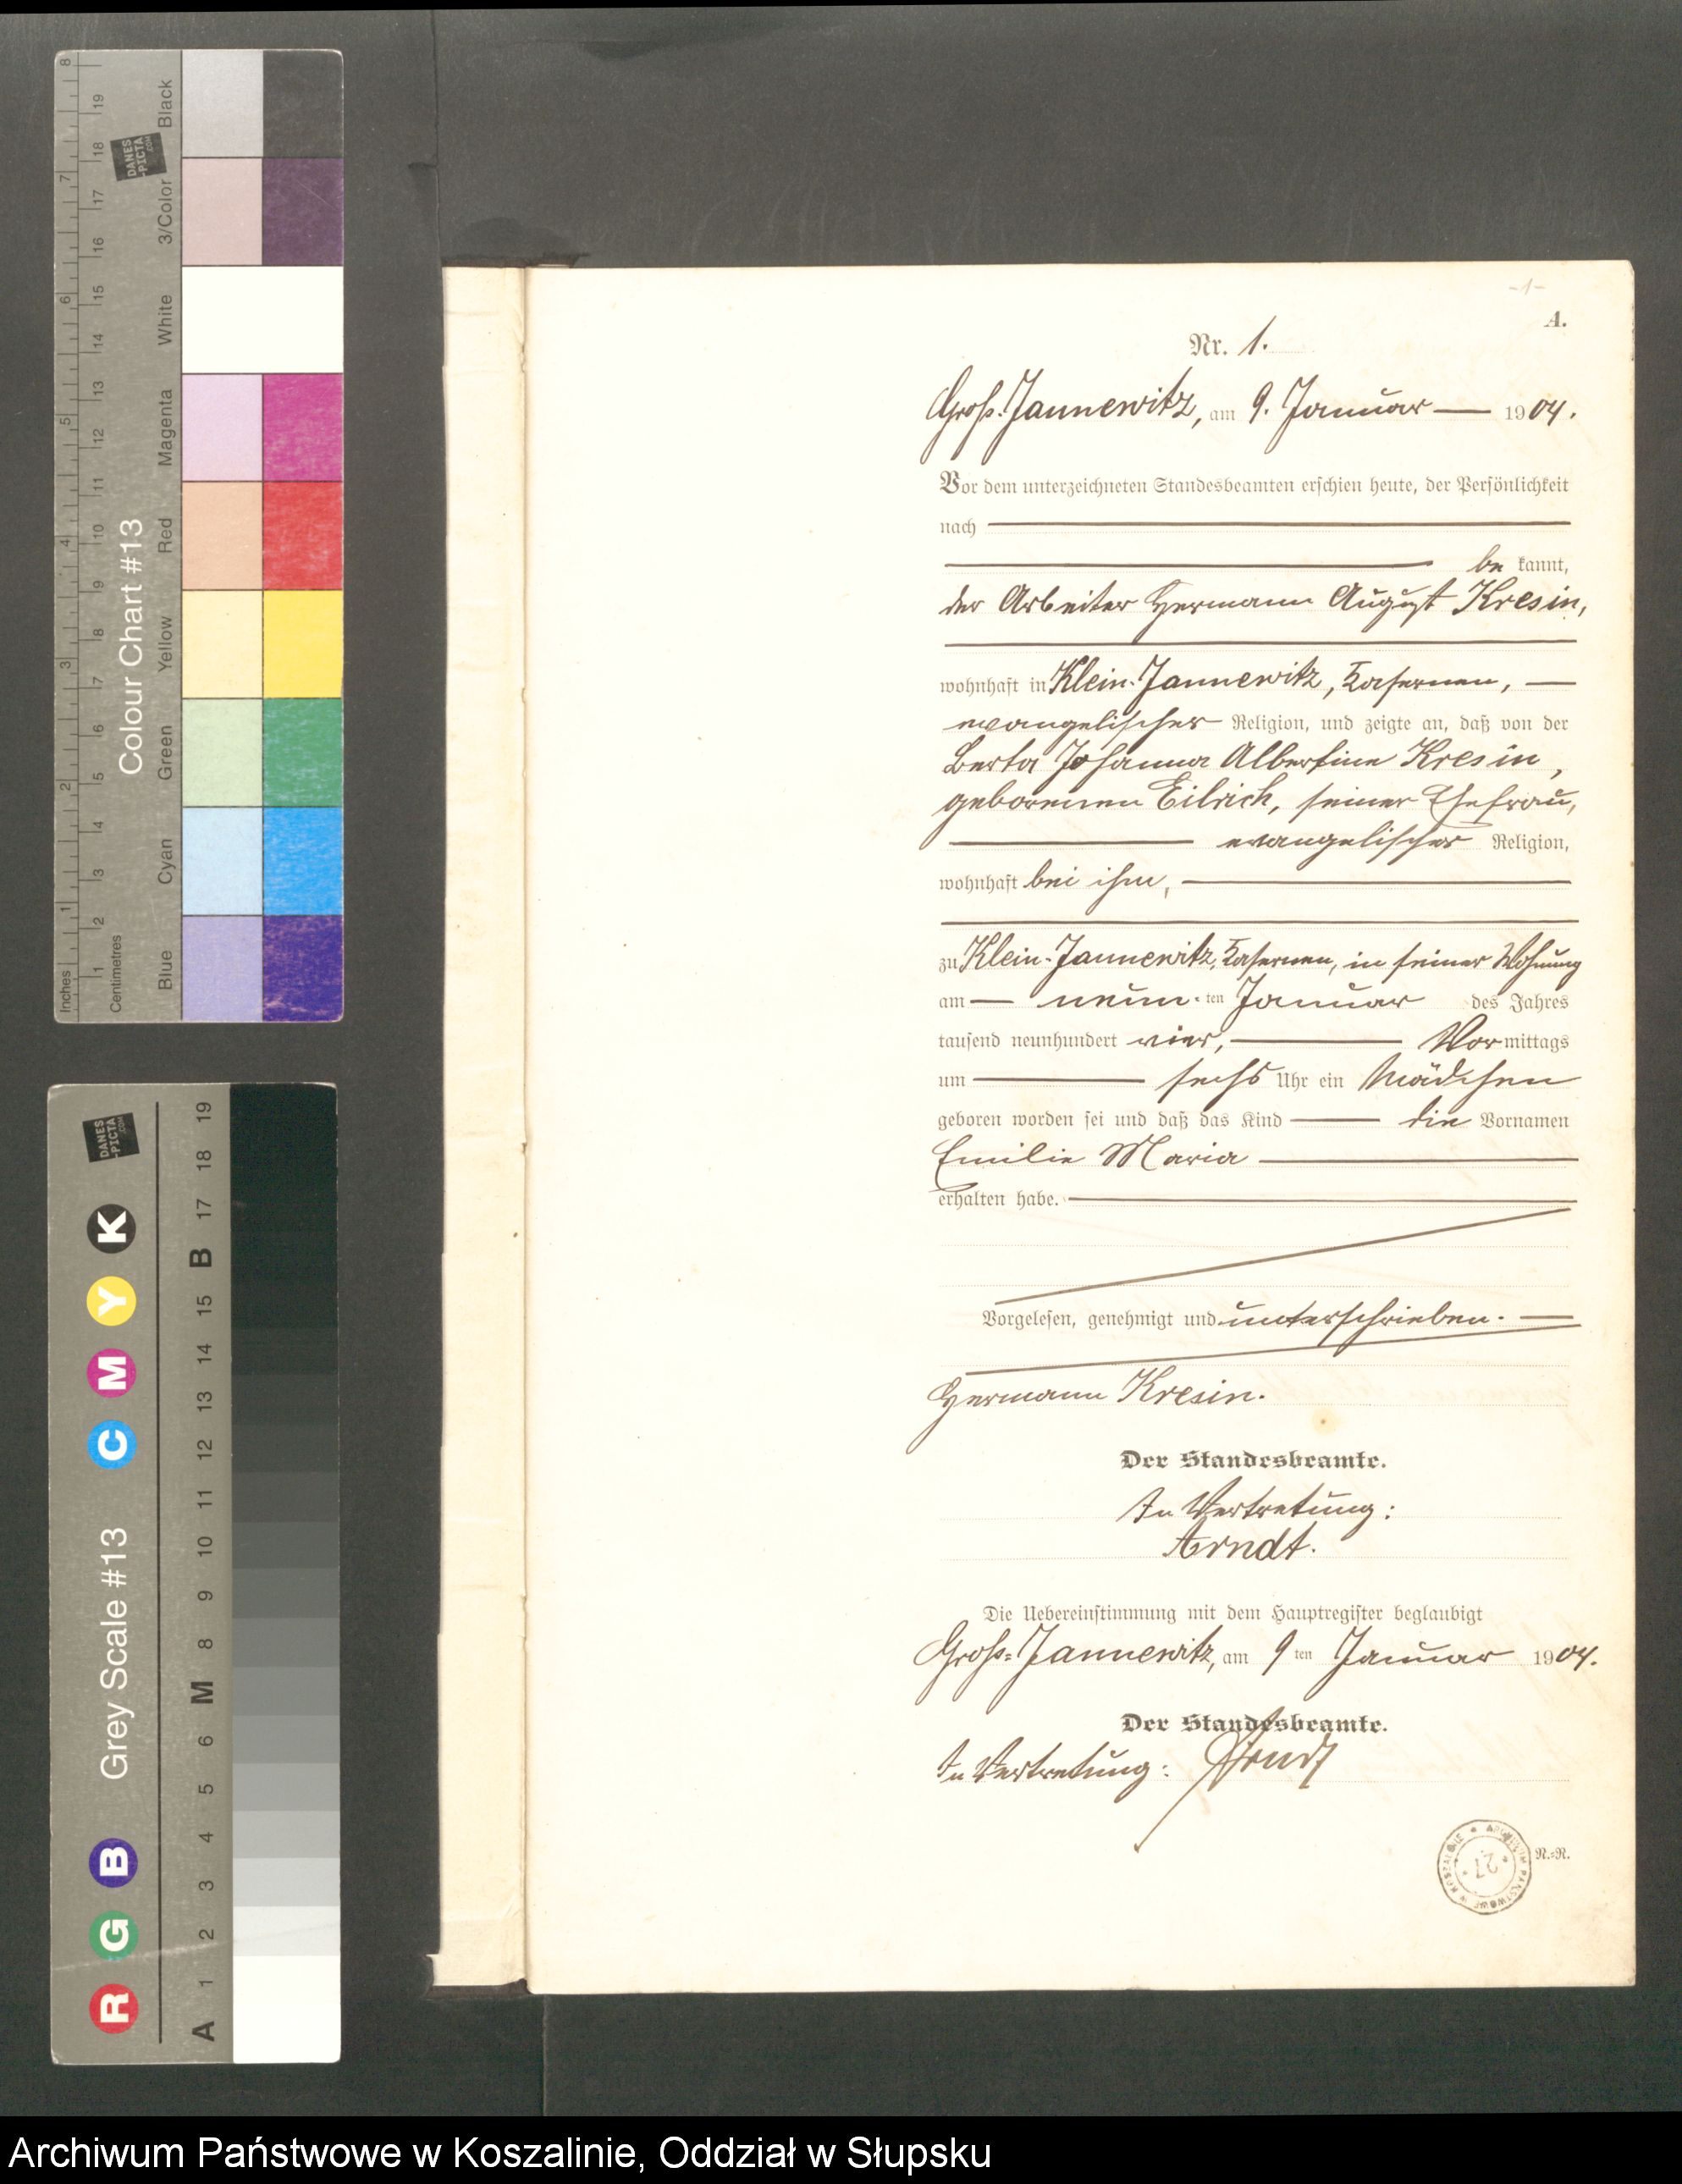 8
7
6
5
4
3
2
1
Inches
19
18
17
16
15
14
13
12
11
10
9
8
7
6
5
4
3
2
1
Centimetres
Colour Chart #13
DANES
-PICTA
.COM
Black
3/Color
White
Magenta
Red
Yellow
Green
Cyan
Blue
DANES
-PICTA
.COM
R G B Grey Scale #13 C M Y K
A 1 2 3 4 5 6 M 8 9 10 11 12 13 14 15 B 17 18 19
-1-
A.
Nr. 1.
Groß-Jannewitz, am 9. Januar 1904.
Vor dem unterzeichneten Standesbeamten erschien heute, der Persönlichkeit
nach
be kannt,
der Arbeiter Hermann August Kresin,
wohnhaft in Klein-Jannewitz, Kasernen,
evangelischer Religion, und zeigte an, daß von der
Berta Johanna Albertine Kresin,
geborenen Eilrich, seiner Ehefrau,
evangelischer Religion,
wohnhaft bei ihm,
zu Klein-Jannewitz, Kasernen, in seiner Wohnung
am neun ten Januar des Jahres
tausend neunhundert vier, Vormittags
um sechs Uhr ein Mädchen
geboren worden sei und daß das Kind die Vornamen
Emilie Maria
erhalten habe.
Vorgelesen, genehmigt und unterschrieben.
Hermann Kresin.
Der Standesbeamte.
In Vertretung:
Arndt.
Die Uebereinstimmung mit dem Hauptregister beglaubigt
Groß-Jannewitz, am 9 ten Januar 1904.
Der Standesbeamte.
In Vertretung: Arndt
ARCHIWUM PAŃSTWOWE W KOSZALINIE
27
R.=R.
Archiwum Państwowe w Koszalinie, Oddział w Słupsku